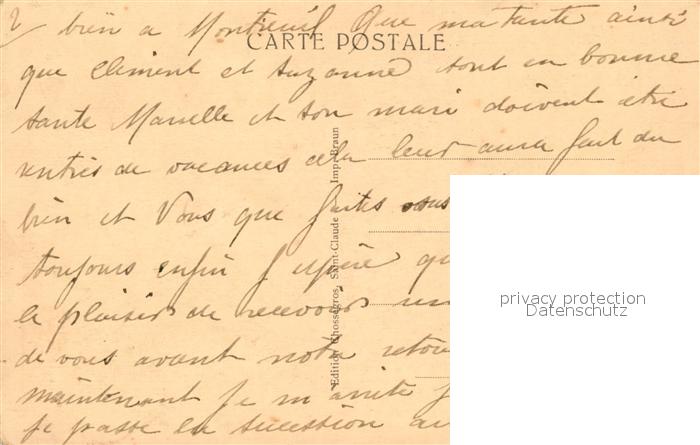 2/ bien a Montreuil Que ma tante ainsi
CARTE POSTALE
que Climent et Suzanne sont en bonne
sante Marcelle et son mari doivent être
rentrés de vacances cela leur aura fait du
bien et Vous que faites vous
toujours enfin J'espère qu
le plaisir de recevoir un
de vous avant notre retou
maintenant Je m'arrête J
Je passe la sucession au
Edition Chossegros, Saint-Claude Imp. Braun
privacy protection
Datenschutz